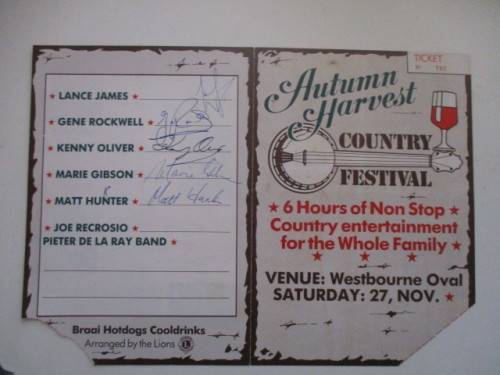 LANCE JAMES
GENE ROCKWELL
KENNY OLIVER
MARIE GIBSON
K
MATT HUNTER Matt Hurk
JOE RECROSIO
PIETER DE LA RAY BAND
Braai Hotdogs Cooldrinks
Arranged by the Lions
TICKET
Autumn
Harvest
COUNTRY
FESTIVAL
6 Hours of Non Stop
Country entertainment
for the Whole Family
VENUE: Westbourne Oval
SATURDAY: 27, NOV.